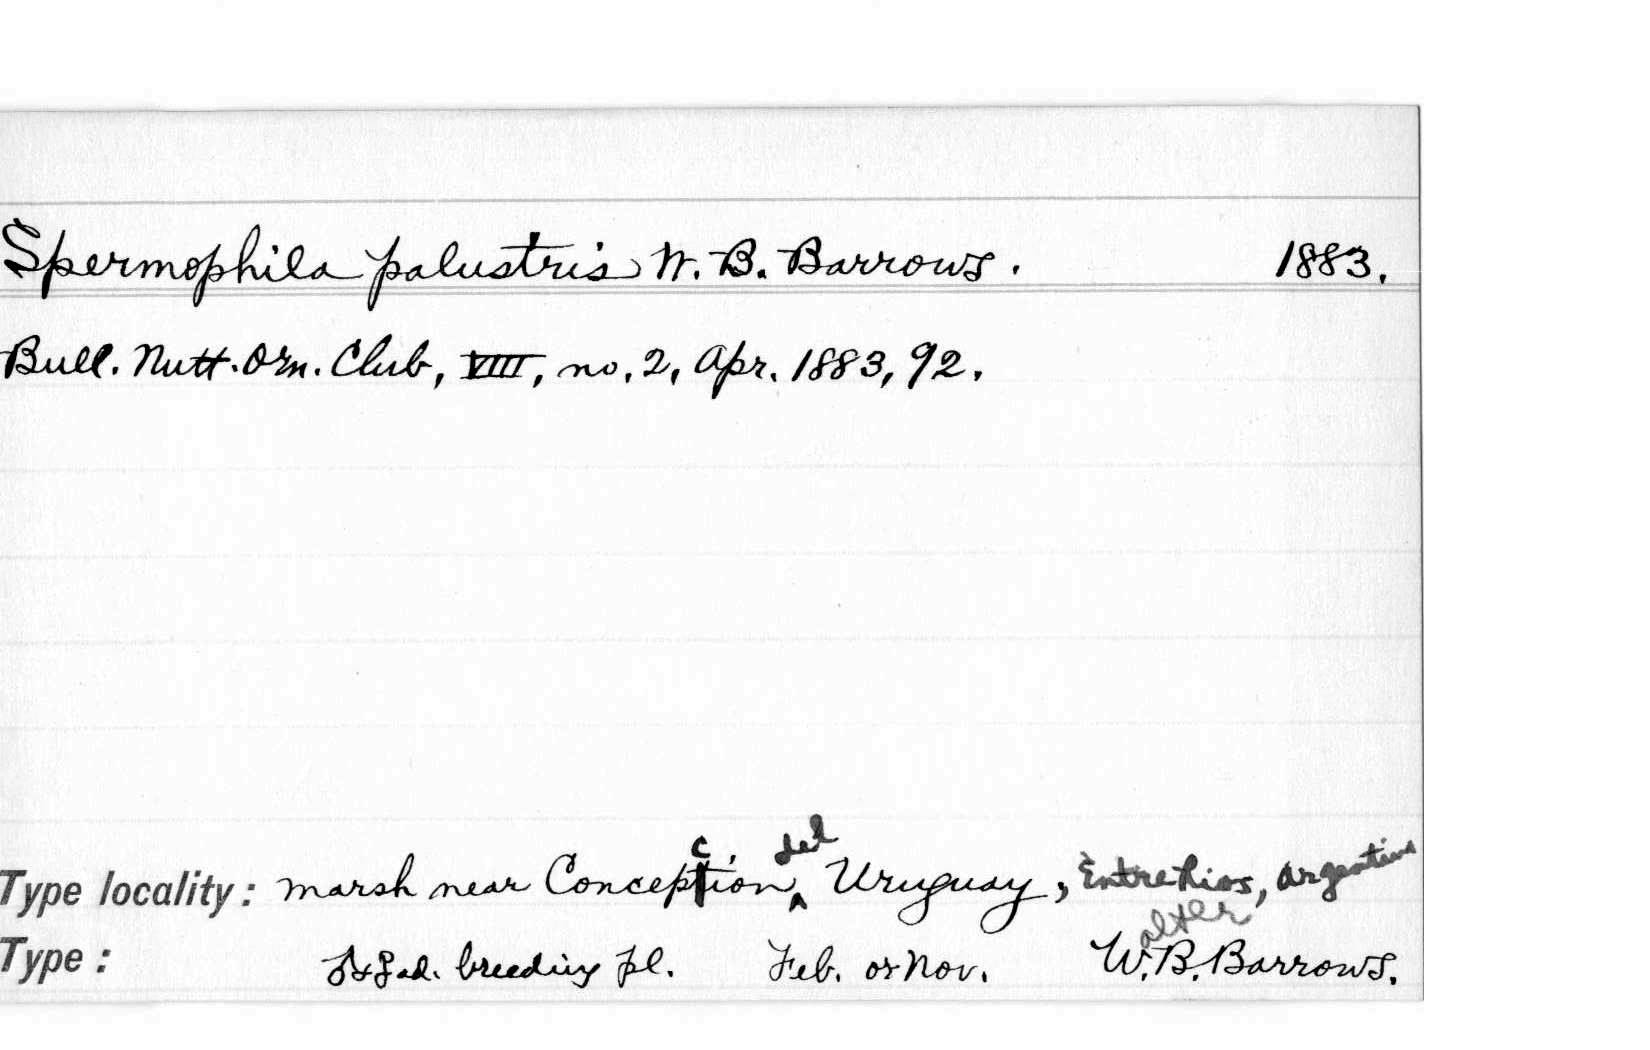 Spermophila palustris W. B. Barrows. 1883.
Bull. Nutt. Orn. Club, VIII, no. 2, Apr. 1883, 92.
Type locality: marsh near Concepcion del Uruguay, Entre Rios, Argentina
alter
Type: ad. breeding pl. Feb. or Nov. W. B. Barrows.